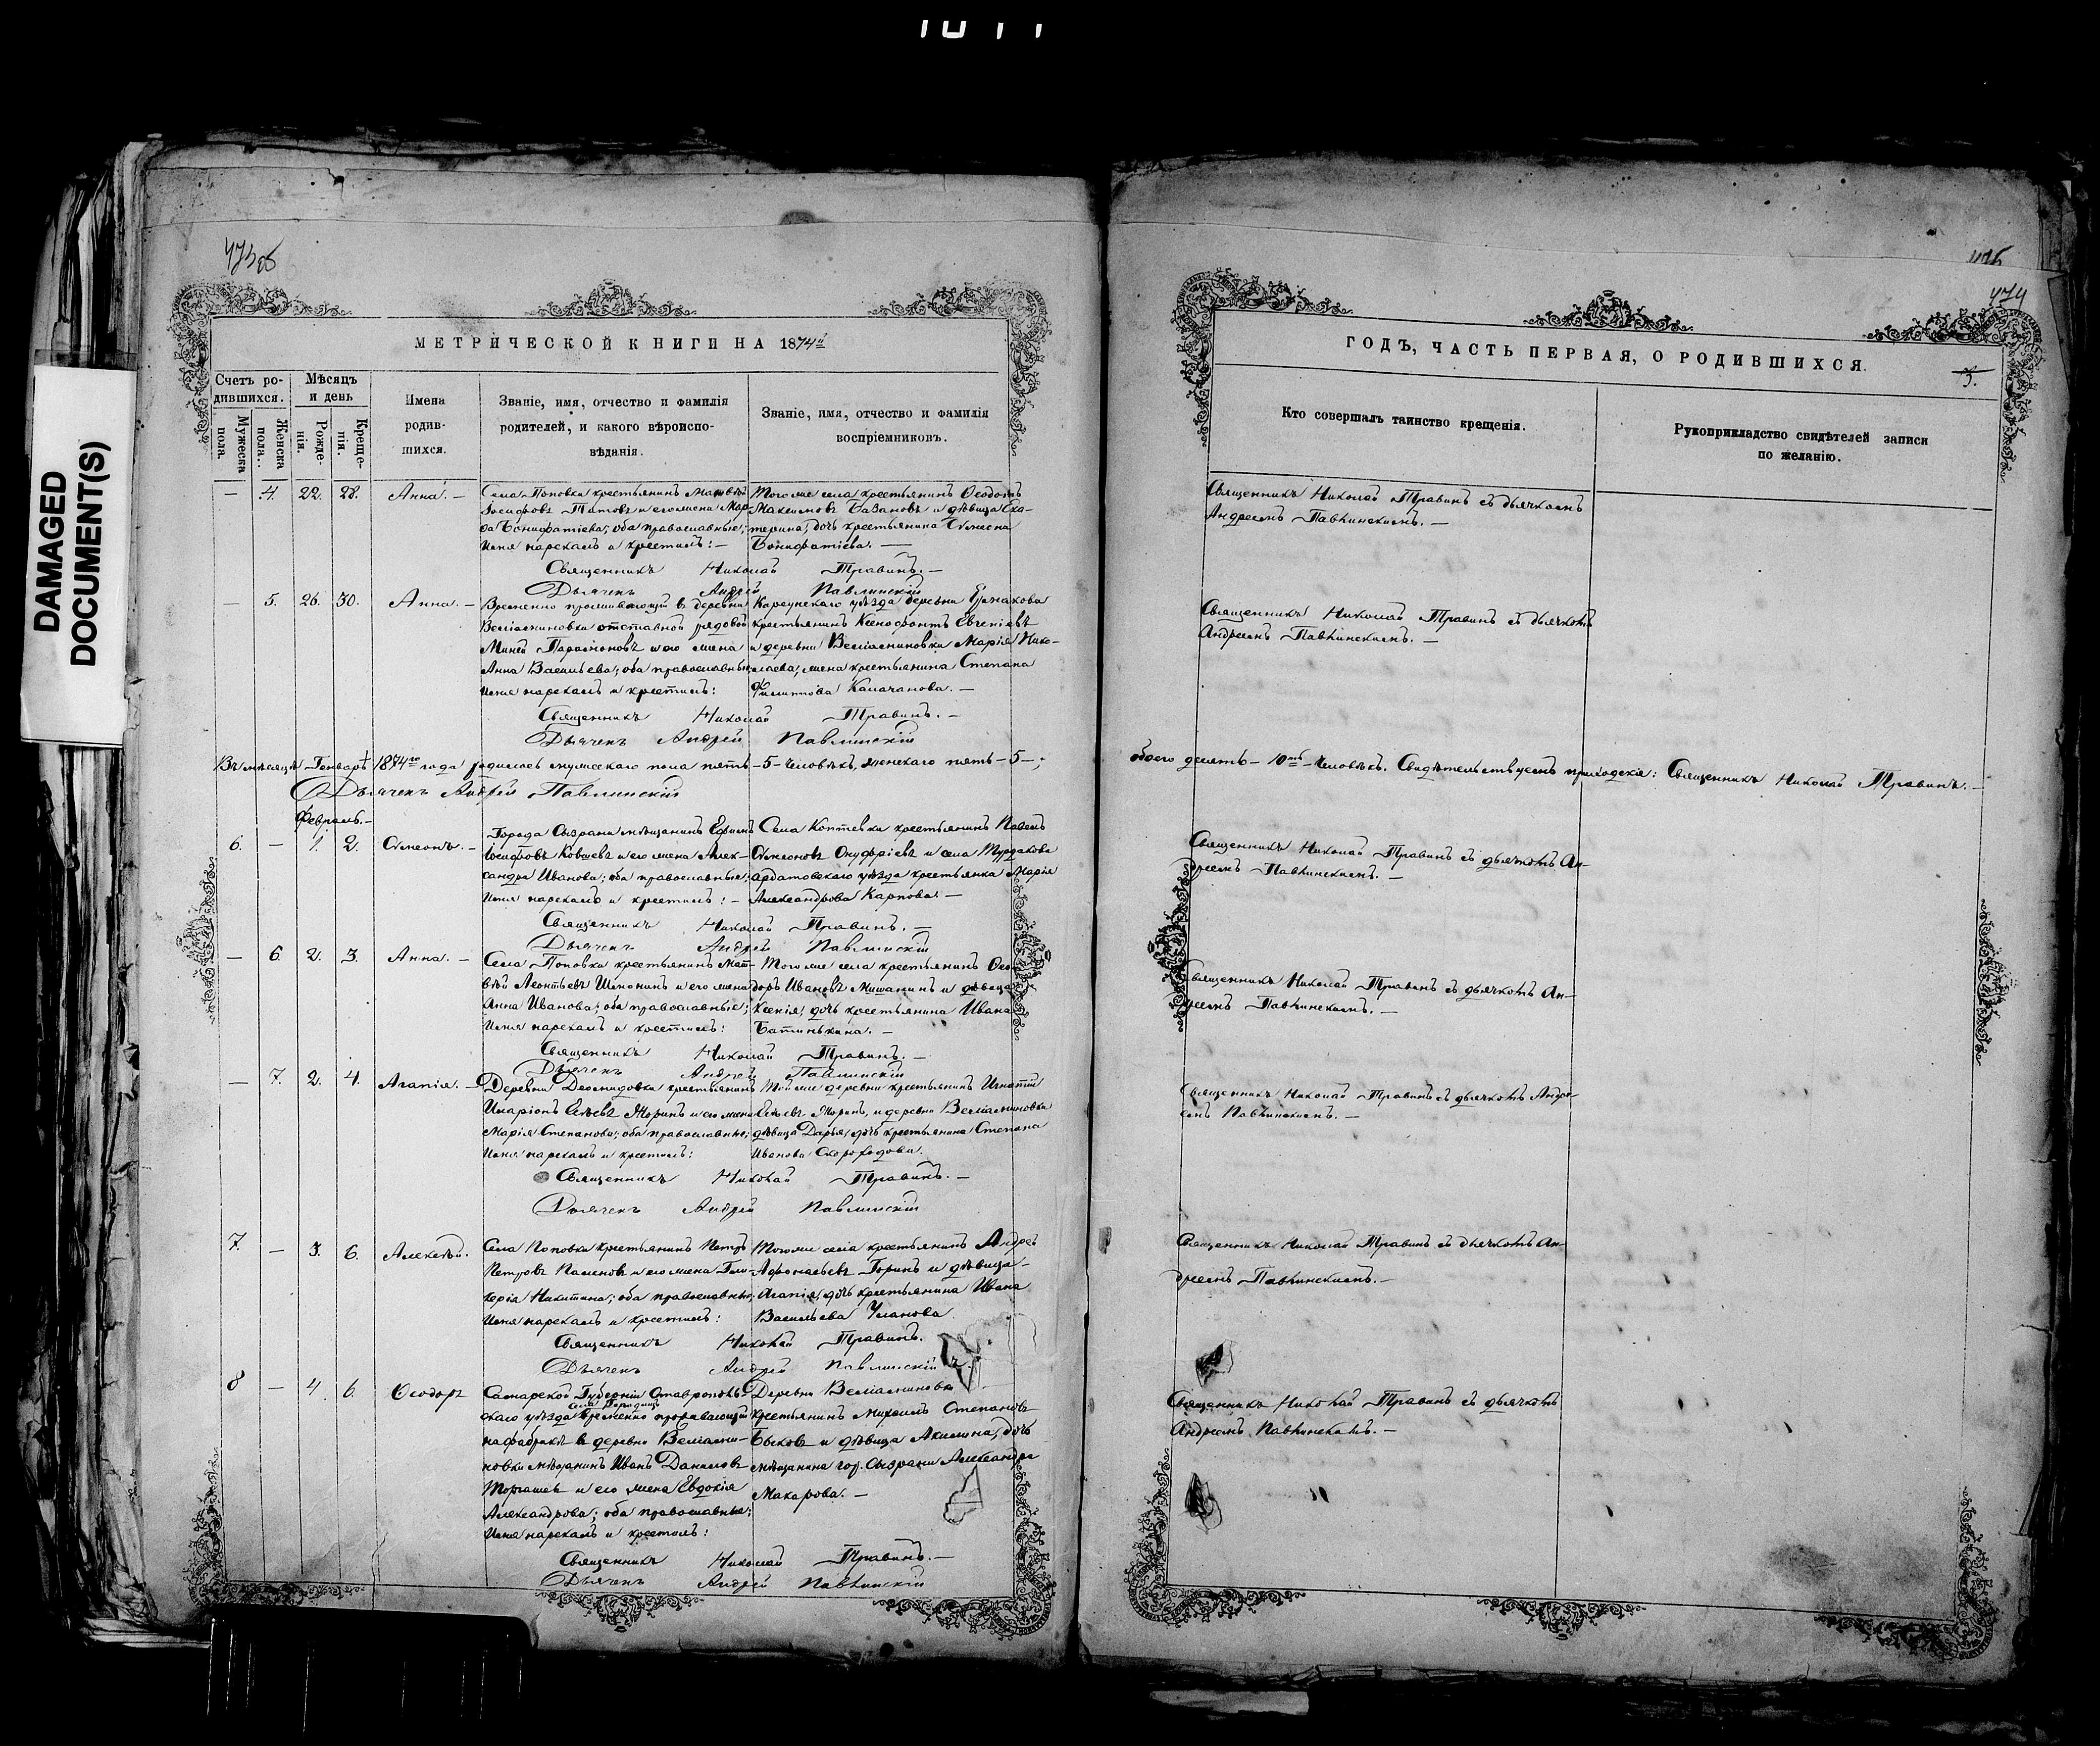 DAMAGED
DOCUMENT(S)
473об
474
МЕТРИЧЕСКОЙ КНИГИ НА 1874й
Счетъ ро-
дившихся.
Мѣсяцъ
и день
Мужеска
пола.
Женска
пола..
Рожде-
нія.
Креще-
нія.
Имена
родив-
шихся.
Званіе, имя, отчество и фамилія
родителей, и какого вѣроиспо-
вѣданія.
Званіе, имя, отчество и фамилія
воспріемниковъ.
— 4. 22. 28. Анна. —
Села Поповки крестьянинъ Матвѣй
Іосифовъ Титовъ и его жена Мар-
ѳа Бонифатіева; оба православные;
Имя нарекалъ и крестилъ: —
Тогоже села крестьянинъ Ѳеодотъ
Максимовъ Базановъ и дѣвица Ека-
терина, дочь крестьянина Симеона
Бонифатіева. —
Священникъ Николай Травинъ. —
Дьячекъ Андрей Павлинскій
— 5. 26. 30. Анна. —
Временно проживающій въ деревни
Вельяминовки отставной рядовой
Миней Парамоновъ и его жена
Анна Васильева; оба православные
Имя нарекалъ и крестилъ:
Карсунскаго уѣзда деревни Ермакова
крестьянинъ Ксенофонтъ Евгеніевъ
и деревни Вельяминовки Марія Нико-
лаева, жена крестьянина Степана
Филиппова Калачанова. —
Священникъ Николай Травинъ. —
Дьячекъ Андрей Павлинскій
Въ мѣсяцѣ Генварѣ 1874го года родилось мужескаго пола пять — 5 — человѣкъ, женскаго пять — 5 —;
Дьячекъ Андрей Павлинскій
Февраль. —
6. — 1. 2. Симеонъ. —
Города Сызрани мѣщанинъ Ефимъ
Іосифовъ Ковшевъ и его жена Алек-
сандра Иванова; оба православные;
Имя нарекалъ и крестилъ: —
Села Коптевки крестьянинъ Павелъ
Симеоновъ Онуфріевъ и села Турдакова
ардатовскаго уѣзда крестьянка Марія
Александрова Карпова. —
Священникъ Николай Травинъ. —
Дьячекъ Андрей Павлинскій
— 6 2. 3. Анна. —
Села Поповки крестьянинъ Мат-
вѣй Леонтьевъ Шелонинъ и его жена
Анна Иванова; оба православные;
Имя нарекалъ и крестилъ:
Тогоже села крестьянинъ Ѳео-
доръ Ивановъ Мишанинъ и дѣвица
Ксенія, дочь крестьянина Ивана
Батинькина. —
Священникъ Николай Травинъ. —
Дьячекъ Андрей Павлинскій
— 7. 2. 4. Агапія. —
Деревни Демидовки крестьянинъ
Иларіонъ Елисѣевъ Жоринъ и его жена
Марія Степанова; оба православные;
Имя нарекалъ и крестилъ:
Тойже деревни крестьянинъ Игнатій
Жоринъ, и деревни Вельяминовки
дѣвица Дарья, дочь крестьянина Степана
Иванова Скороходова.
Священникъ Николай Травинъ. —
Дьячекъ Андрей Павлинскій
7. — 3. 6. Алексѣй.
Села Поповки крестьянинъ Петръ
Петровъ Паленовъ и его жена Гли-
керія Никитина; оба православные;
Имя нарекалъ и крестилъ:
Тогоже села крестьянинъ Андрей
Афонасьевъ Горинъ и дѣвица
Агапія, дочь крестьянина Ивана
Васильева Уланова
Священникъ Николай Травинъ.
Дьячекъ Андрей Павлинскій
8 — 4. 6. Ѳеодоръ
Самарской Губерніи Ставрополь-
скаго уѣзда временно проживающій
на фабрикѣ въ деревни Вельями-
новки мѣщанинъ Иванъ Даниловъ
Торгашевъ и его жена Евдокія
Александрова; оба православные;
Имя нарекалъ и крестилъ:
Деревни Вельяминовки
крестьянинъ Михаилъ Степановъ
Быковъ и дѣвица Акилина, дочь
мѣщанина гор. Сызрани Александра
Макарова. —
Священникъ Николай Травинъ. —
Дьячекъ Андрей Павлинскій
ГОДЪ, ЧАСТЬ ПЕРВАЯ, О РОДИВШИХСЯ.
3.
Кто совершалъ таинство крещенія.
Рукоприкладство свидѣтелей записи
по желанію.
Священникъ Николай Травинъ съ дьячкомъ
Андреемъ Павлинскимъ. —
Священникъ Николай Травинъ съ дьячкомъ
Андреемъ Павлинскимъ. —
обоего десять — 10ть — человѣкъ. Свидѣтельствуемъ приходскіе: Священникъ Николай Травинъ. —
Священникъ Николай Травинъ съ дьячкомъ Ан-
дреемъ Павлинскимъ. —
Священникъ Николай Травинъ съ дьячкомъ Ан-
дреемъ Павлинскимъ. —
Священникъ Николай Травинъ съ дьячкомъ Андре-
емъ Павлинскимъ. —
Священникъ Николай Травинъ съ дьячкомъ Ан-
дреемъ Павлинскимъ. —
Священникъ Николай Травинъ съ дьячкомъ
Андреемъ Павлинскимъ. —